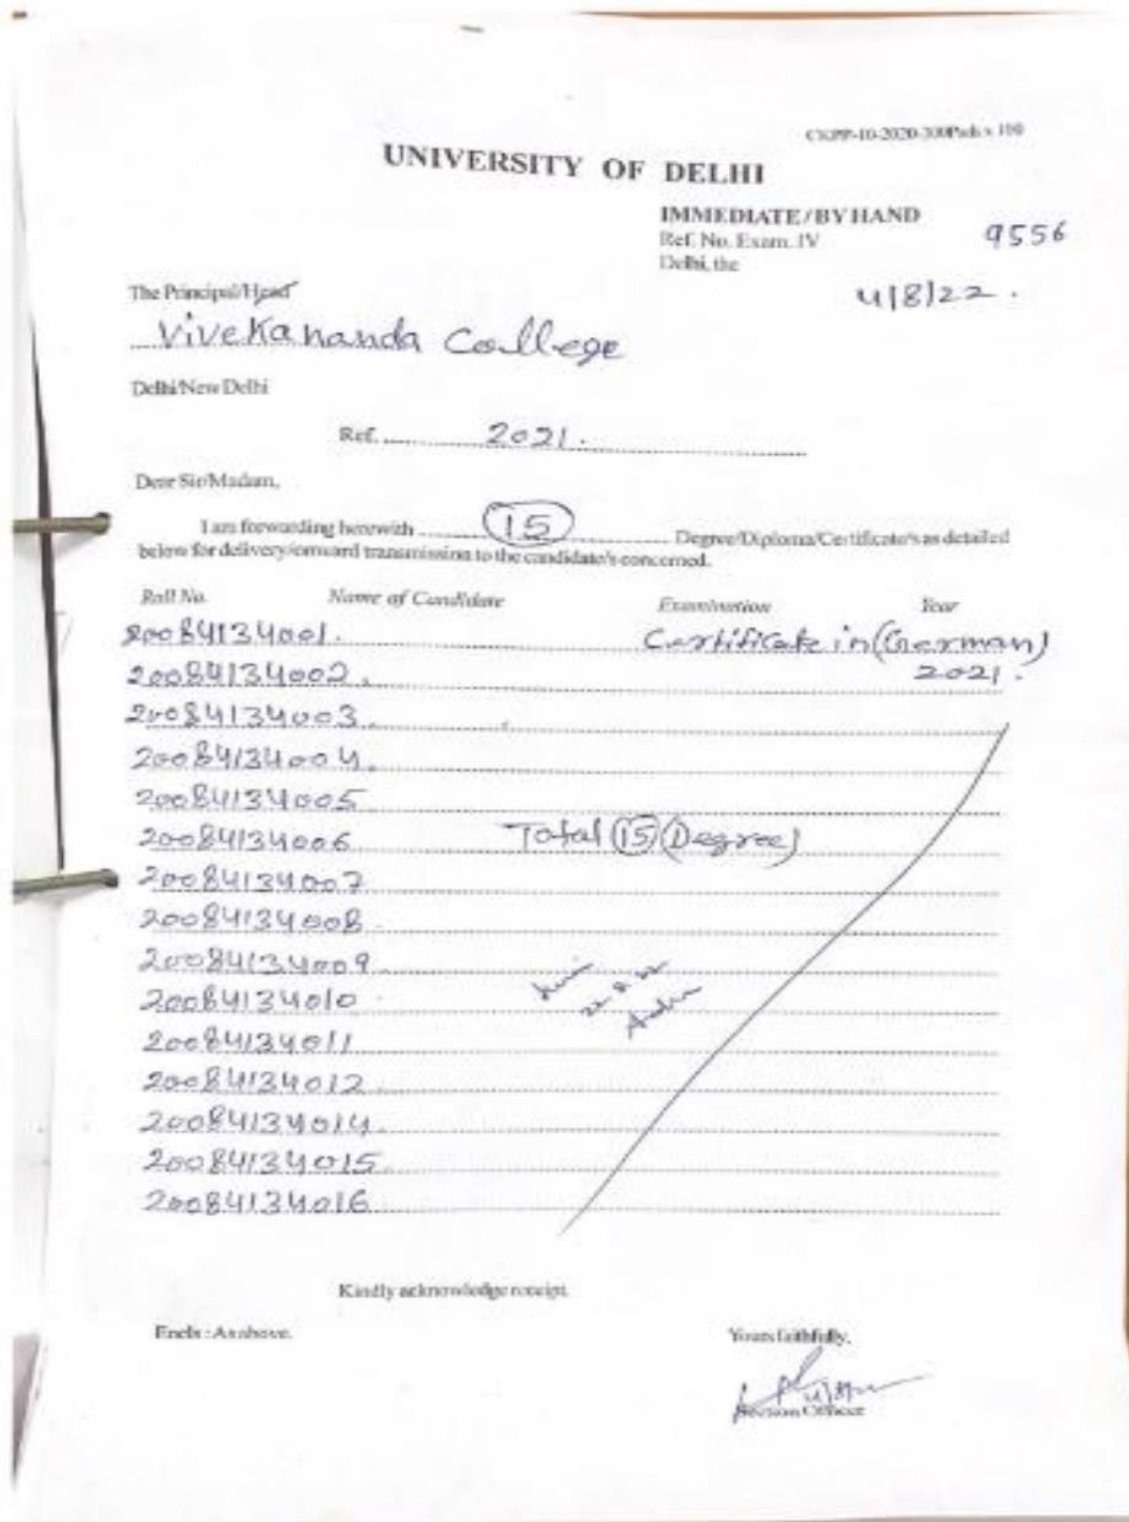 CKPP-10-2020-300Pads x 100
UNIVERSITY OF DELHI
IMMEDIATE / BY HAND
Ref. No. Exam. IV 9556
Delhi, the
4/8/22.
The Principal/Head
Vivekananda College
Delhi/New Delhi
Ref. 2021.
Dear Sir/Madam,
I am forwarding herewith 15 Degree/Diploma/Certificate's as detailed
below for delivery/onward transmission to the candidate's concerned.
Roll No. Name of Candidate Examination Year
20084134001. Certificate in (German)
20084134002. 2021.
20084134003.
20084134004.
20084134005
20084134006 Total 15 (Degree)
20084134007
20084134008
20084134009
20084134010
20084134011
20084134012
20084134014
20084134015
20084134016
Kindly acknowledge receipt.
Encls : As above.
Yours faithfully,
Section Officer